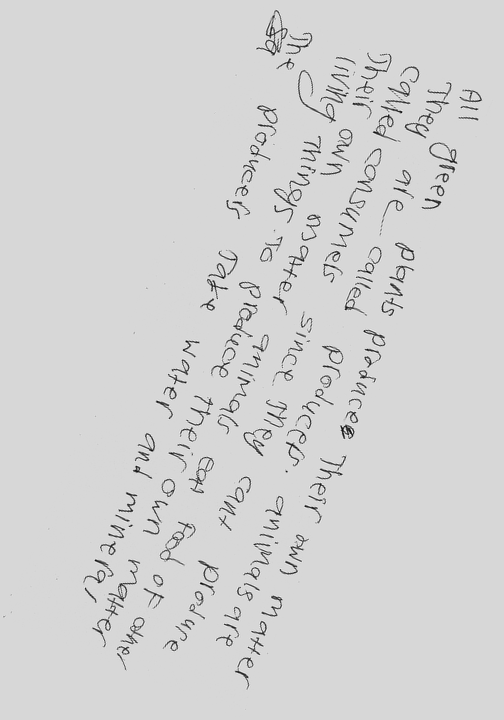 All green plants produce Their own matter
They are called producers. animals are
called consumers since they cant produce
Their own matter animals eat food of other
living things To produce their own matter
The producers Take water and mineral